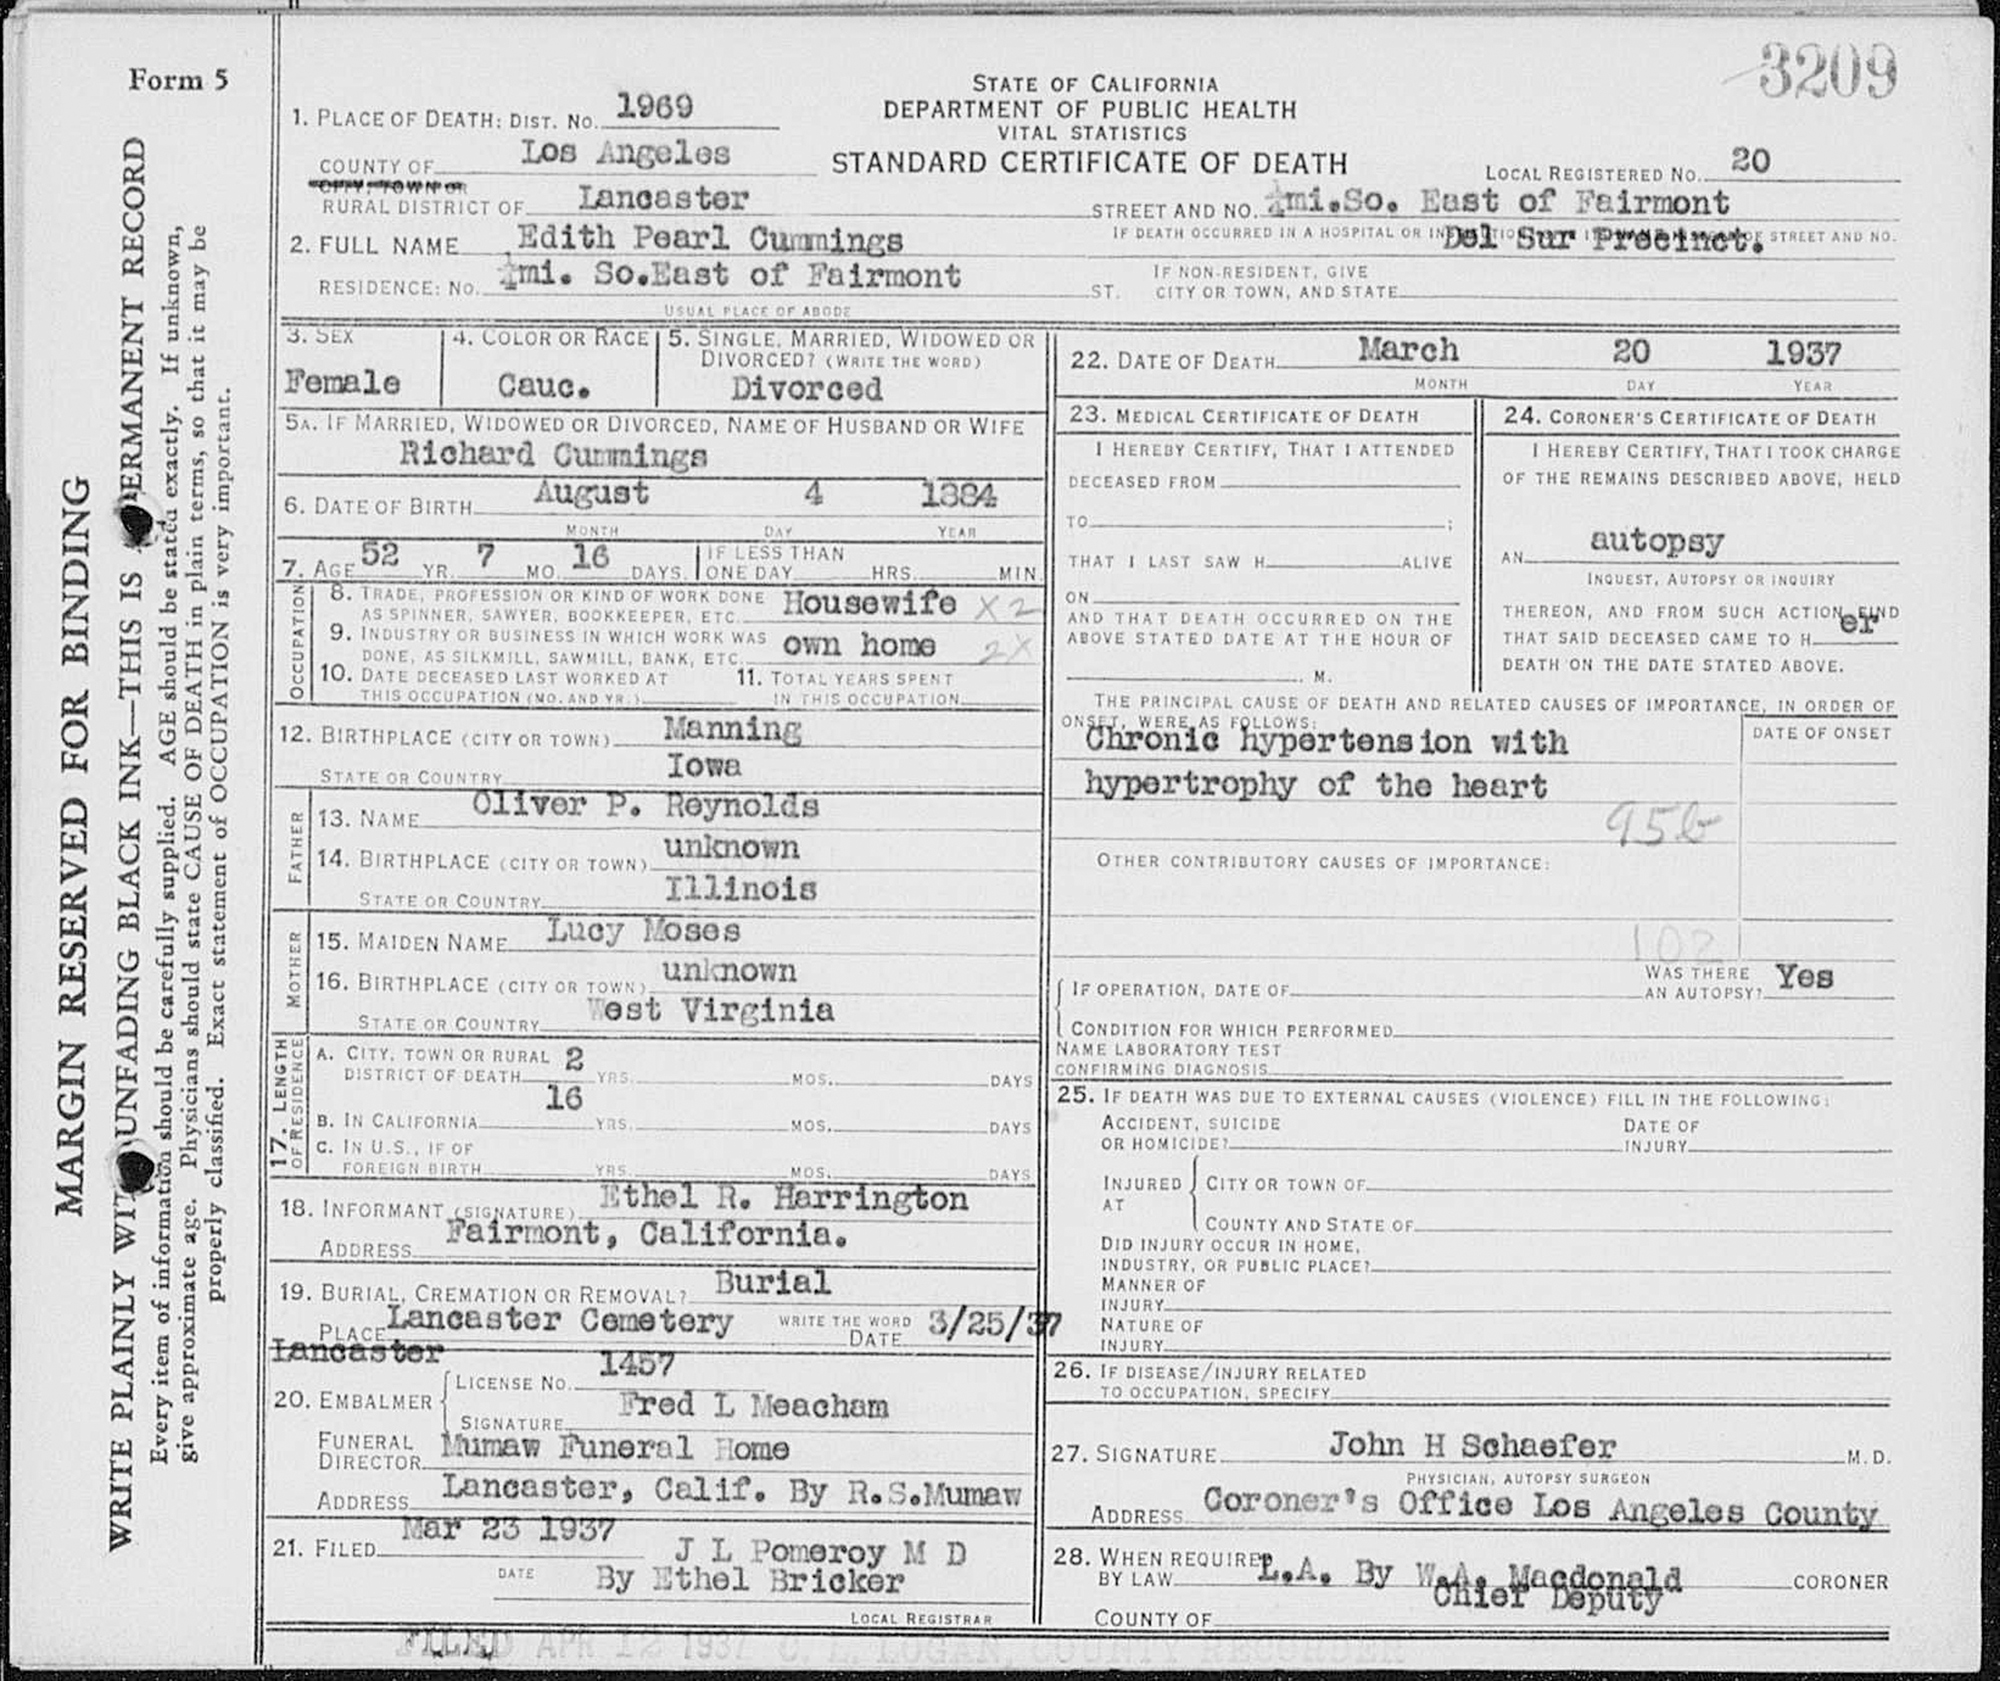 3209
Form 5
STATE OF CALIFORNIA
DEPARTMENT OF PUBLIC HEALTH
VITAL STATISTICS
STANDARD CERTIFICATE OF DEATH
1. PLACE OF DEATH: DIST. No. 1969
COUNTY OF Los Angeles
LOCAL REGISTERED No. 20
CITY, TOWN OR
RURAL DISTRICT OF Lancaster
STREET AND NO. ¼mi.So. East of Fairmont
Del Sur Precinct.
2. FULL NAME Edith Pearl Cummings
RESIDENCE: No. ¼mi. So.East of Fairmont ST.
USUAL PLACE OF ABODE
IF NON-RESIDENT, GIVE
CITY OR TOWN, AND STATE
3. SEX
Female
4. COLOR OR RACE
Cauc.
5. SINGLE, MARRIED, WIDOWED OR
DIVORCED? (WRITE THE WORD)
Divorced
5A. IF MARRIED, WIDOWED OR DIVORCED, NAME OF HUSBAND OR WIFE
Richard Cummings
6. DATE OF BIRTH August 4 1884
MONTH DAY YEAR
7. AGE 52 YR. 7 MO. 16 DAYS.
IF LESS THAN
ONE DAY HRS. MIN
OCCUPATION
8. TRADE, PROFESSION OR KIND OF WORK DONE
AS SPINNER, SAWYER, BOOKKEEPER, ETC. Housewife X 2
9. INDUSTRY OR BUSINESS IN WHICH WORK WAS
DONE, AS SILKMILL, SAWMILL, BANK, ETC. own home 2X
10. DATE DECEASED LAST WORKED AT
THIS OCCUPATION (MO. AND YR.)
11. TOTAL YEARS SPENT
IN THIS OCCUPATION
12. BIRTHPLACE (CITY OR TOWN) Manning
STATE OR COUNTRY Iowa
FATHER
13. NAME Oliver P. Reynolds
14. BIRTHPLACE (CITY OR TOWN) unknown
STATE OR COUNTRY Illinois
MOTHER
15. MAIDEN NAME Lucy Moses
16. BIRTHPLACE (CITY OR TOWN) unknown
STATE OR COUNTRY West Virginia
17. LENGTH
OF RESIDENCE
A. CITY, TOWN OR RURAL
DISTRICT OF DEATH 2 YRS. MOS. DAYS
B. IN CALIFORNIA 16 YRS. MOS. DAYS
C. IN U.S., IF OF
FOREIGN BIRTH YRS. MOS. DAYS
18. INFORMANT (SIGNATURE) Ethel R. Harrington
ADDRESS Fairmont, California.
19. BURIAL, CREMATION OR REMOVAL? Burial
WRITE THE WORD
PLACE Lancaster Cemetery DATE 3/25/37
Lancaster
20. EMBALMER
LICENSE No. 1457
SIGNATURE Fred L Meacham
FUNERAL
DIRECTOR Mumaw Funeral Home
ADDRESS Lancaster, Calif. By R.S.Mumaw
21. FILED Mar 23 1937
DATE
J L Pomeroy M D
By Ethel Bricker
LOCAL REGISTRAR
22. DATE OF DEATH March 20 1937
MONTH DAY YEAR
23. MEDICAL CERTIFICATE OF DEATH
I HEREBY CERTIFY, THAT I ATTENDED
DECEASED FROM
TO ;
THAT I LAST SAW H ALIVE
ON
AND THAT DEATH OCCURRED ON THE
ABOVE STATED DATE AT THE HOUR OF
M.
24. CORONER'S CERTIFICATE OF DEATH
I HEREBY CERTIFY, THAT I TOOK CHARGE
OF THE REMAINS DESCRIBED ABOVE, HELD
AN autopsy
INQUEST, AUTOPSY OR INQUIRY
THEREON, AND FROM SUCH ACTION FIND
THAT SAID DECEASED CAME TO H er
DEATH ON THE DATE STATED ABOVE.
THE PRINCIPAL CAUSE OF DEATH AND RELATED CAUSES OF IMPORTANCE, IN ORDER OF
ONSET, WERE AS FOLLOWS:
DATE OF ONSET
Chronic hypertension with
hypertrophy of the heart
95b
OTHER CONTRIBUTORY CAUSES OF IMPORTANCE:
102
WAS THERE
AN AUTOPSY? Yes
IF OPERATION, DATE OF
CONDITION FOR WHICH PERFORMED
NAME LABORATORY TEST
CONFIRMING DIAGNOSIS
25. IF DEATH WAS DUE TO EXTERNAL CAUSES (VIOLENCE) FILL IN THE FOLLOWING:
ACCIDENT, SUICIDE
OR HOMICIDE?
DATE OF
INJURY
INJURED
AT
CITY OR TOWN OF
COUNTY AND STATE OF
DID INJURY OCCUR IN HOME,
INDUSTRY, OR PUBLIC PLACE?
MANNER OF
INJURY
NATURE OF
INJURY
26. IF DISEASE/INJURY RELATED
TO OCCUPATION, SPECIFY
27. SIGNATURE John H Schaefer M.D.
PHYSICIAN, AUTOPSY SURGEON
ADDRESS Coroner's Office Los Angeles County
28. WHEN REQUIRED
BY LAW L.A. By W.A. Macdonald CORONER
Chief Deputy
COUNTY OF
FILED APR 12 1937 C. L. LOGAN, COUNTY RECORDER
MARGIN RESERVED FOR BINDING
WRITE PLAINLY WITH UNFADING BLACK INK—THIS IS A PERMANENT RECORD
Every item of information should be carefully supplied. AGE should be stated exactly. If unknown,
give approximate age. Physicians should state CAUSE OF DEATH in plain terms, so that it may be
properly classified. Exact statement of OCCUPATION is very important.